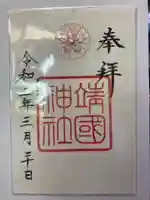 奉拝
靖國
神社
令和二年三月二十日